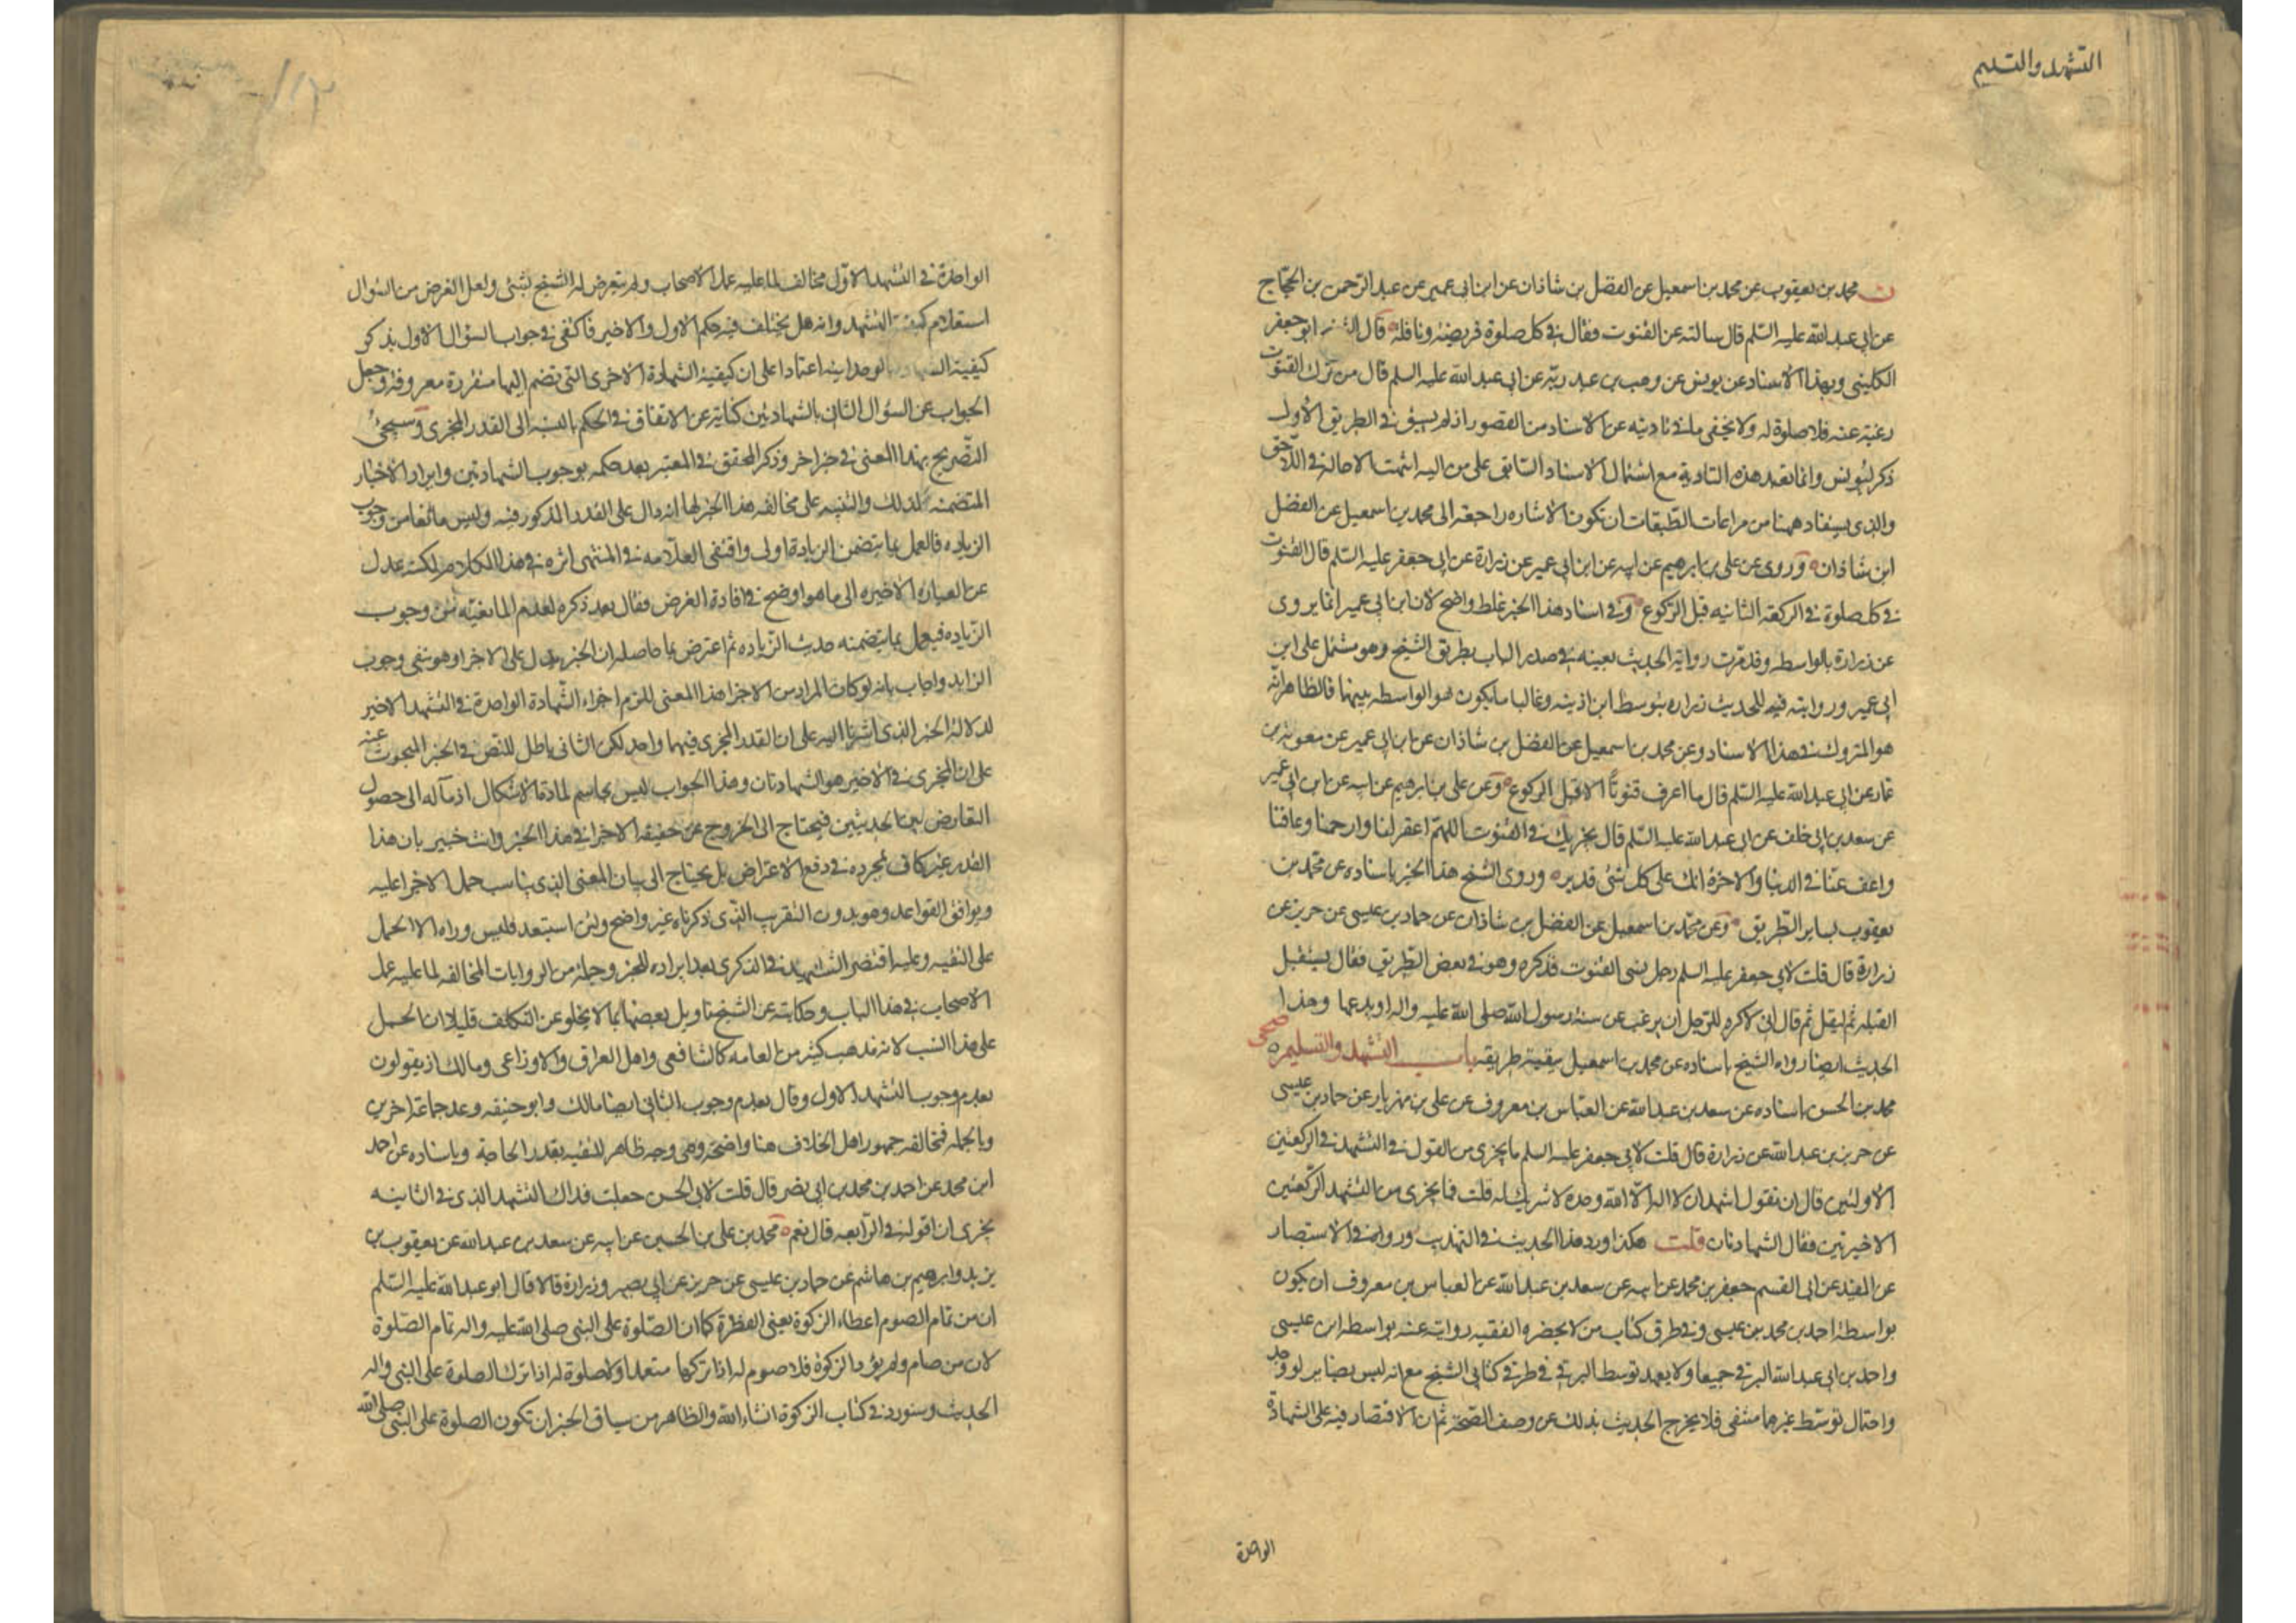 التشهد والتسليم
ن محمد بن يعقوب عن محمد بن اسمعيل عن الفضل بن شاذان عن ابن ابي عمير عن عبد الرحمن بن الحجاج
عن ابي عبد الله عليه السلم قال سالته عن القنوت فقال في كل صلوة فريضة ونافلة قال ابو جعفر
الكليني وبهذا الاسناد عن يونس عن وهب بن عبد ربه عن ابي عبد الله عليه السلم قال من ترك القنوت
رغبة عنه فلا صلوة له ولا يخفى ما في تاديته عن الاسناد من القصور اذ لم يسبق في الطريق الاول
ذكر ليونس وانما تعهد هذه التادية مع اشتمال الاسناد السابق على من اليه انتهت الاحالة في اللاحق
والذي يستفاد ههنا من مراعات الطبقات ان تكون الاشاره راجعة الى محمد بن اسمعيل عن الفضل
ابن شاذان وروى عن علي بن ابرهيم عن ابيه عن ابن ابي عمير عن زرارة عن ابي جعفر عليه السلم قال القنوت
في كل صلوة في الركعة الثانيه قبل الركوع وفي اسناد هذا الخبر غلط واضح لان ابن ابي عمير انما يروي
عن زرارة بالواسطه وقد مرت رواية الحديث بعينه في صدر الباب بطريق الشيخ وهو مشتمل على ابن
ابي عمير وروايته فيه للحديث عن زراره بتوسط ابن اذينه وغالبا ما يكون هو الواسطه بينهما فالظاهر انه
هو المتروك في هذا الاسناد وعن محمد بن اسمعيل عن الفضل بن شاذان عن ابن ابي عمير عن معوية بن
عمار عن ابي عبد الله عليه السلم قال ما اعرف قنوتا الا قبل الركوع وعن علي بن ابرهيم عن ابيه عن ابن ابي عمير
عن سعد بن ابي خلف عن ابي عبد الله عليه السلم قال يجزيك في القنوت اللهم اغفر لنا وارحمنا وعافنا
واعف عنا في الدنيا والاخرة انك على كل شئ قدير وروى الشيخ هذا الخبر باسناده عن محمد بن
يعقوب بساير الطريق وعن محمد بن اسمعيل عن الفضل بن شاذان عن حماد بن عيسى عن حريز عن
زرارة قال قلت لابي جعفر عليه السلم رجل نسي القنوت فذكره وهو في بعض الطريق فقال يستقبل
القبله ثم ليقله ثم قال اني لاكره للرجل ان يرغب عن سنة رسول الله صلى الله عليه واله او يدعها وهذا
الحديث ايضا رواه الشيخ باسناده عن محمد بن اسمعيل ببقية طريقه باب التشهد والتسليم صحى
محمد بن الحسن باسناده عن سعد بن عبد الله عن العباس بن معروف عن علي بن مهزيار عن حماد بن عيسى
عن حريز بن عبد الله عن زرارة قال قلت لابي جعفر عليه السلم ما يجزي من القول في التشهد في الركعتين
الاولتين قال ان تقول اشهد ان لا اله الا الله وحده لا شريك له قلت فما يجزي من التشهد الركعتين
الاخيرتين فقال الشهادتان قلت هكذا اورد هذا الحديث في التهذيب ورواه في الاستبصار
عن المفيد عن ابي القسم جعفر بن محمد عن ابيه عن سعد بن عبد الله عن العباس بن معروف ان يكون
بواسطة احمد بن محمد بن عيسى وفي طرق كتاب من لا يحضره الفقيه روايته عنه بواسطة ابن عيسى
واحمد بن ابي عبد الله البرقي جميعا ولا يعهد توسط البرقي في طرق كتابي الشيخ مع انه ليس بضاير لو وجد
واحتمال توسط غيرهما منتفى فلا يخرج الحديث بذلك عن وصف الصحة ثم ان الاقتصار فيه على الشهادة
الواحدة
الواحدة في التشهد الاول مخالف لما عليه عمل الاصحاب ولم يتعرض له الشيخ بشئ ولعل الغرض من السؤال
استعلام كيفية التشهد وانه هل يختلف فيه حكم الاول والاخير فاكتفى في جواب السؤال الاول بذكر
كيفية الشهادة بالوحدانيه اعتمادا على ان كيفية الشهادة الاخرى التي تضم اليها متقررة معروفة وجعل
الجواب عن السؤال الثاني بالشهادتين كناية عن الاتفاق في الحكم بالنسبة الى القدر المجزي وسيجئ
التصريح بهذا المعنى في خبر اخر وذكر المحقق في المعتبر بعد حكمه بوجوب الشهادتين وايراد الاخبار
المتضمنه لذلك والتنبيه على مخالفة هذا الخبر لها انه دال على القدر المذكور فيه وليس مانعا من وجوب
الزياده فالعمل بما يتضمن الزيادة اولى واقتفى العلامه في المنتهى اثره في هذا الكلام لكنه عدل
عن العباره الاخيره الى ما هو اوضح في افادة الغرض فقال بعد ذكره لعدم المانعيه من وجوب
الزياده فيعمل بما يتضمنه حديث الزياده ثم اعترض بما حاصله ان الخبر يدل على الاجزا وهو نفي وجوب
الزايد واجاب بانه لو كان المراد من الاجزا هذا المعنى للزم اجزاء الشهادة الواحدة في التشهد الاخير
لدلالة الخبر الذي اشرنا اليه على ان القدر المجزي فيهما واحد لكن الثاني باطل للنص في الخبر المبحوث عنه
على ان المجزي في الاخير هو الشهادتان وهذا الجواب ليس بحاسم لمادة الاشكال اذ مآله الى حصول
التعارض بين الحديثين فيحتاج الى الخروج عن حقيقة الاجزا في هذا الخبر وانت خبير بان هذا
القدر غير كاف بمجرده في دفع الاعتراض بل يحتاج الى بيان المعنى الذي يناسب حمل الاجزا عليه
ويوافق القواعد وهو بدون التقريب الذي ذكرناه غير واضح ولئن استبعد فليس وراه الا الحمل
على التقيه وعليه اقتصر الشهيد في الذكرى بعد ايراده للخبر وجملة من الروايات المخالفه لما عليه عمل
الاصحاب في هذا الباب وحكايته عن الشيخ تاويل بعضها بما لا يخلو عن التكلف قليلا ان الحمل
على هذا انسب لانه مذهب كثير من العامه كالشافعي واهل العراق والاوزاعي ومالك اذ يقولون
بعدم وجوب التشهد الاول وقال بعدم وجوب الثاني ايضا مالك وابو حنيفه وعد جماعة اخرين
وبالجمله فمخالفة جمهور اهل الخلاف هنا واضحة وهي وجه ظاهر للتقيه بقدر الحاجة وباسناده عن احمد
ابن محمد عن احمد بن محمد بن ابي نصر قال قلت لابي الحسن جعلت فداك التشهد الذي في الثانيه
يجزي ان اقوله في الرابعه قال نعم محمد بن علي بن الحسين عن ابيه عن سعد بن عبد الله عن يعقوب بن
يزيد وابرهيم بن هاشم عن حماد بن عيسى عن حريز عن ابي بصير وزرارة قالا قال ابو عبد الله عليه السلم
ان من تمام الصوم اعطاء الزكوة يعني الفطرة كما ان الصلوة على النبي صلى الله عليه واله تمام الصلوة
لان من صام ولم يؤد الزكوة فلا صوم له اذا تركها متعمدا ولا صلوة له اذا ترك الصلوة على النبي واله
الحديث وسنورده في كتاب الزكوة انشاء الله والظاهر من سياق الخبر ان تكون الصلوة على النبي صلى الله